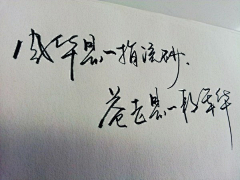 风华是一指流砂,
苍老是一段年华